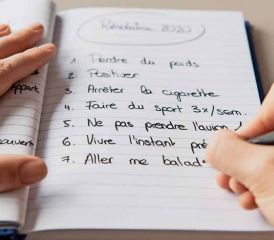 Résolution 2020
1. Perdre du poids
2. Positiver
3. Arrêter la cigarette
4. Faire du sport 3x/sem.
5. Ne pas prendre l'avion
6. Vivre l'instant pré
7. Aller me balad
appart
ouvert